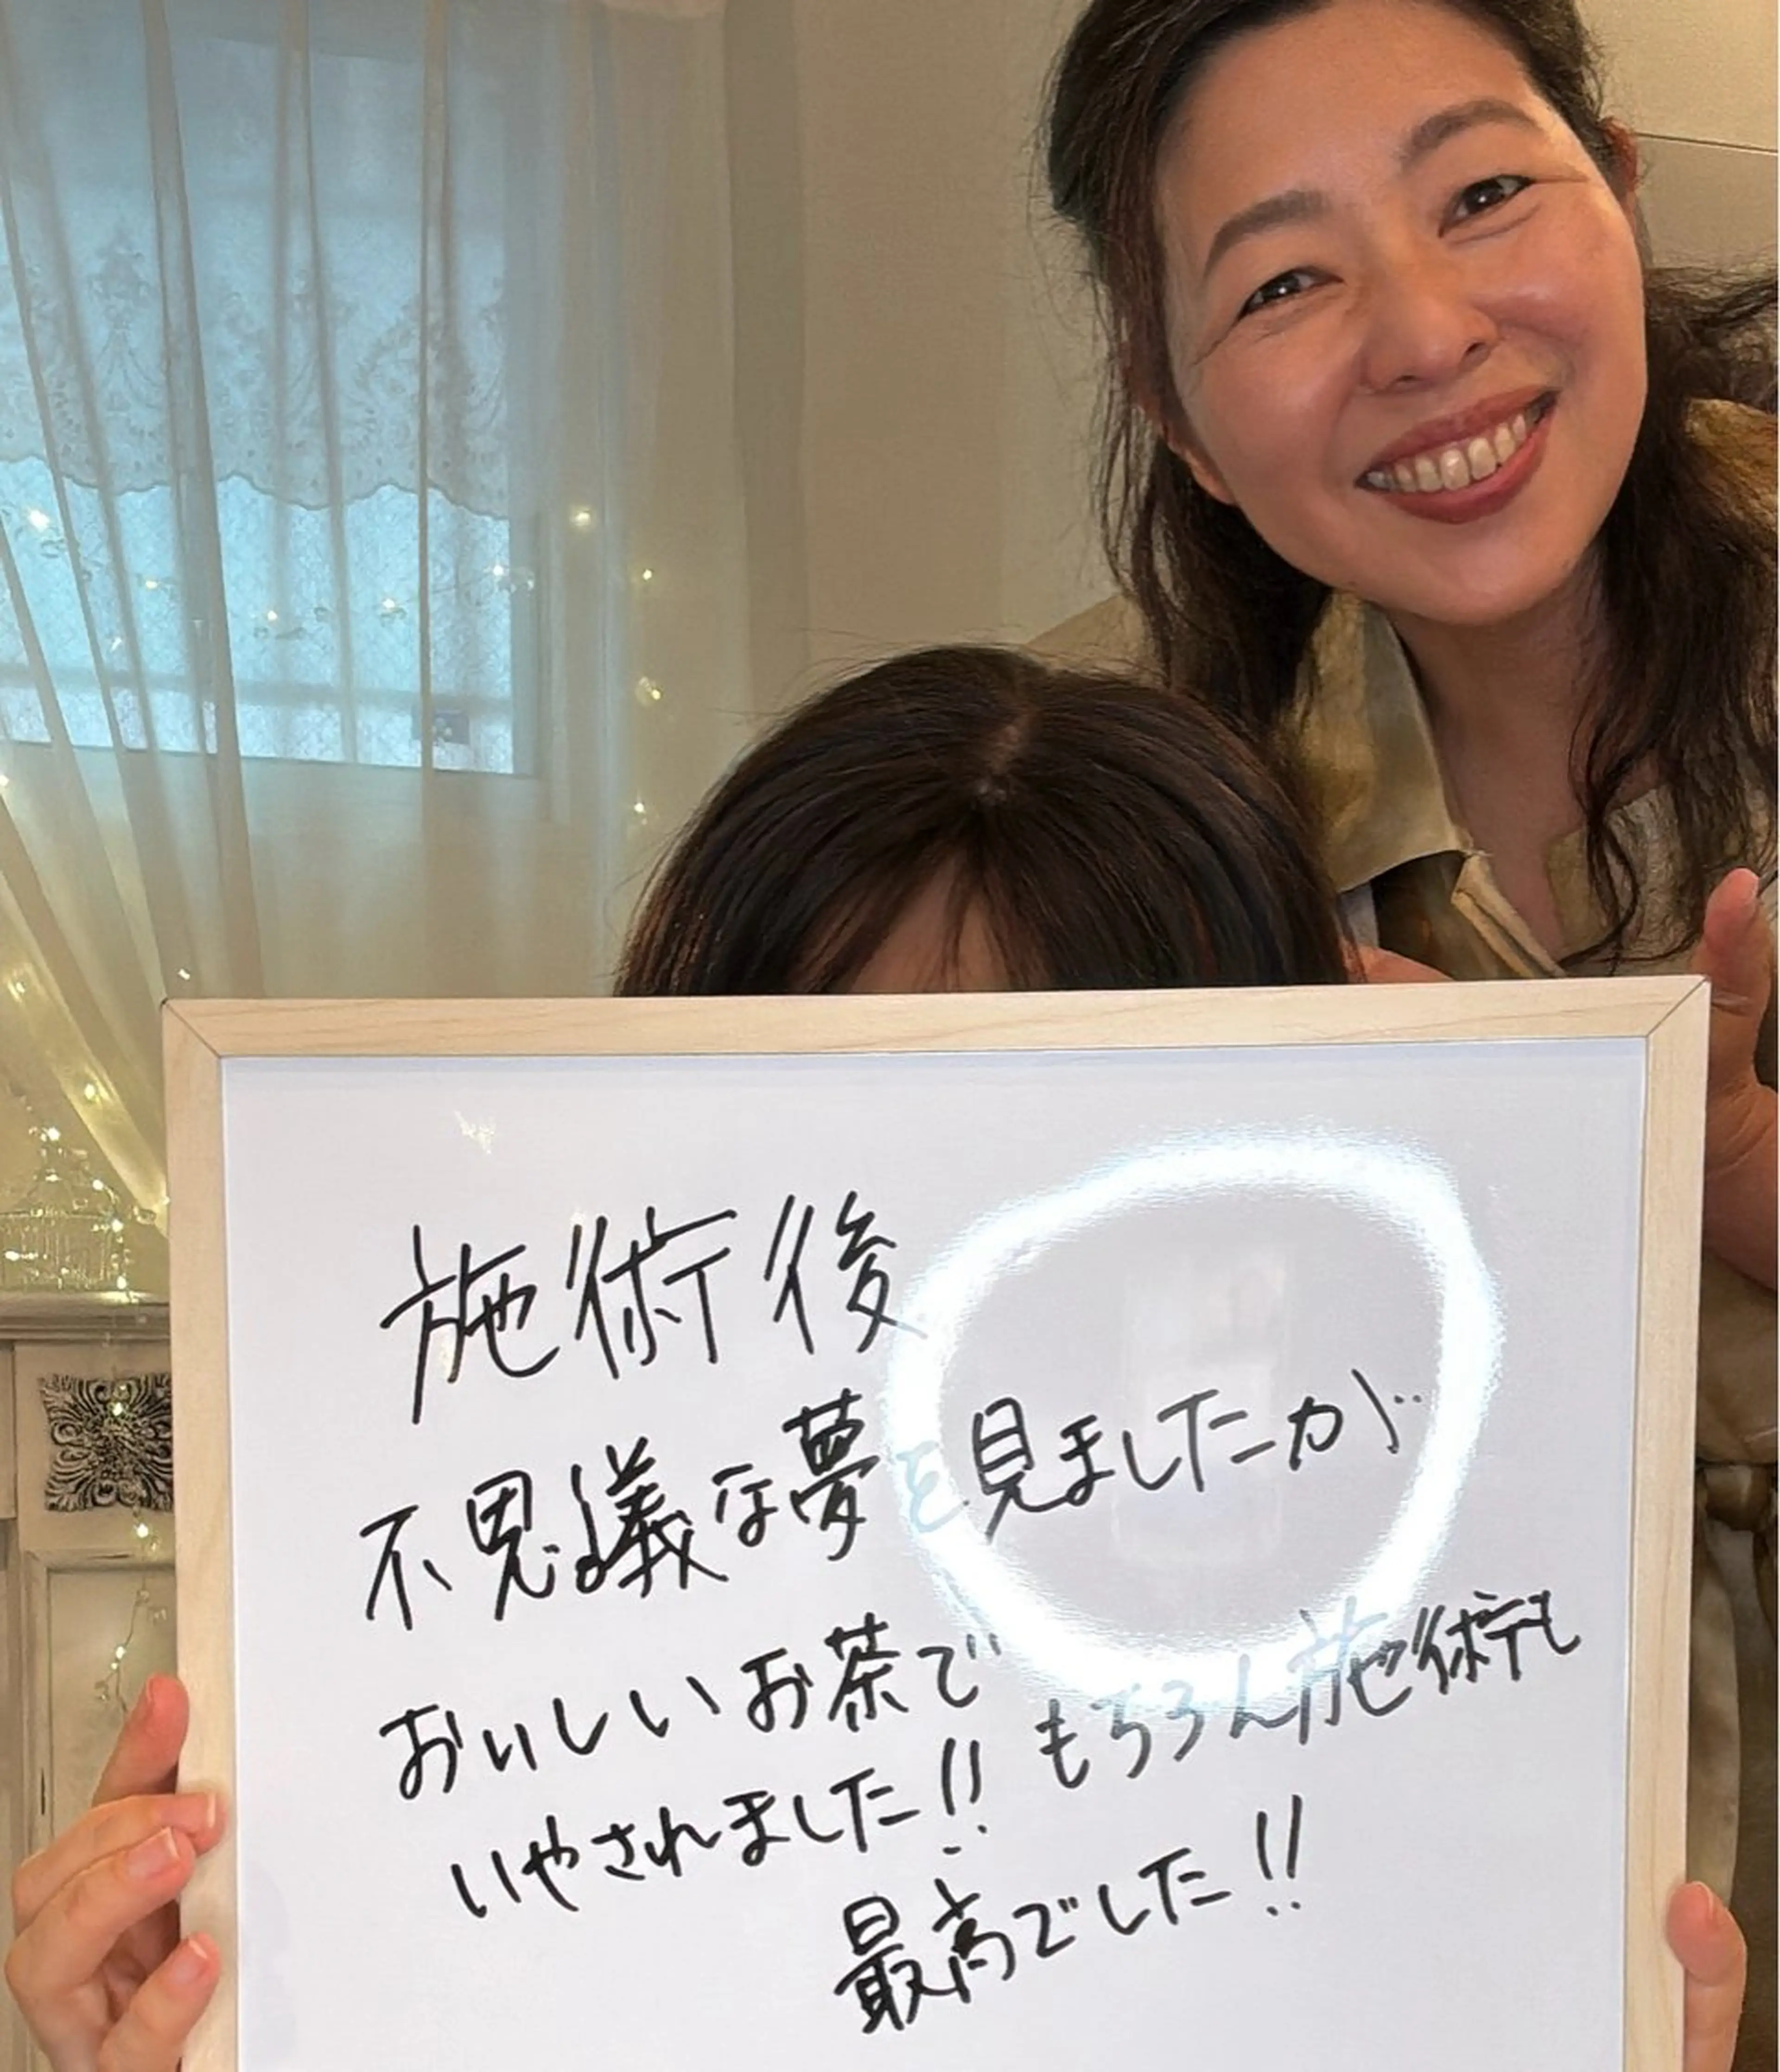 施術後
不思議な夢を見ましたが
おいしいお茶で
いやされました!! もちろん施術も
最高でした!!